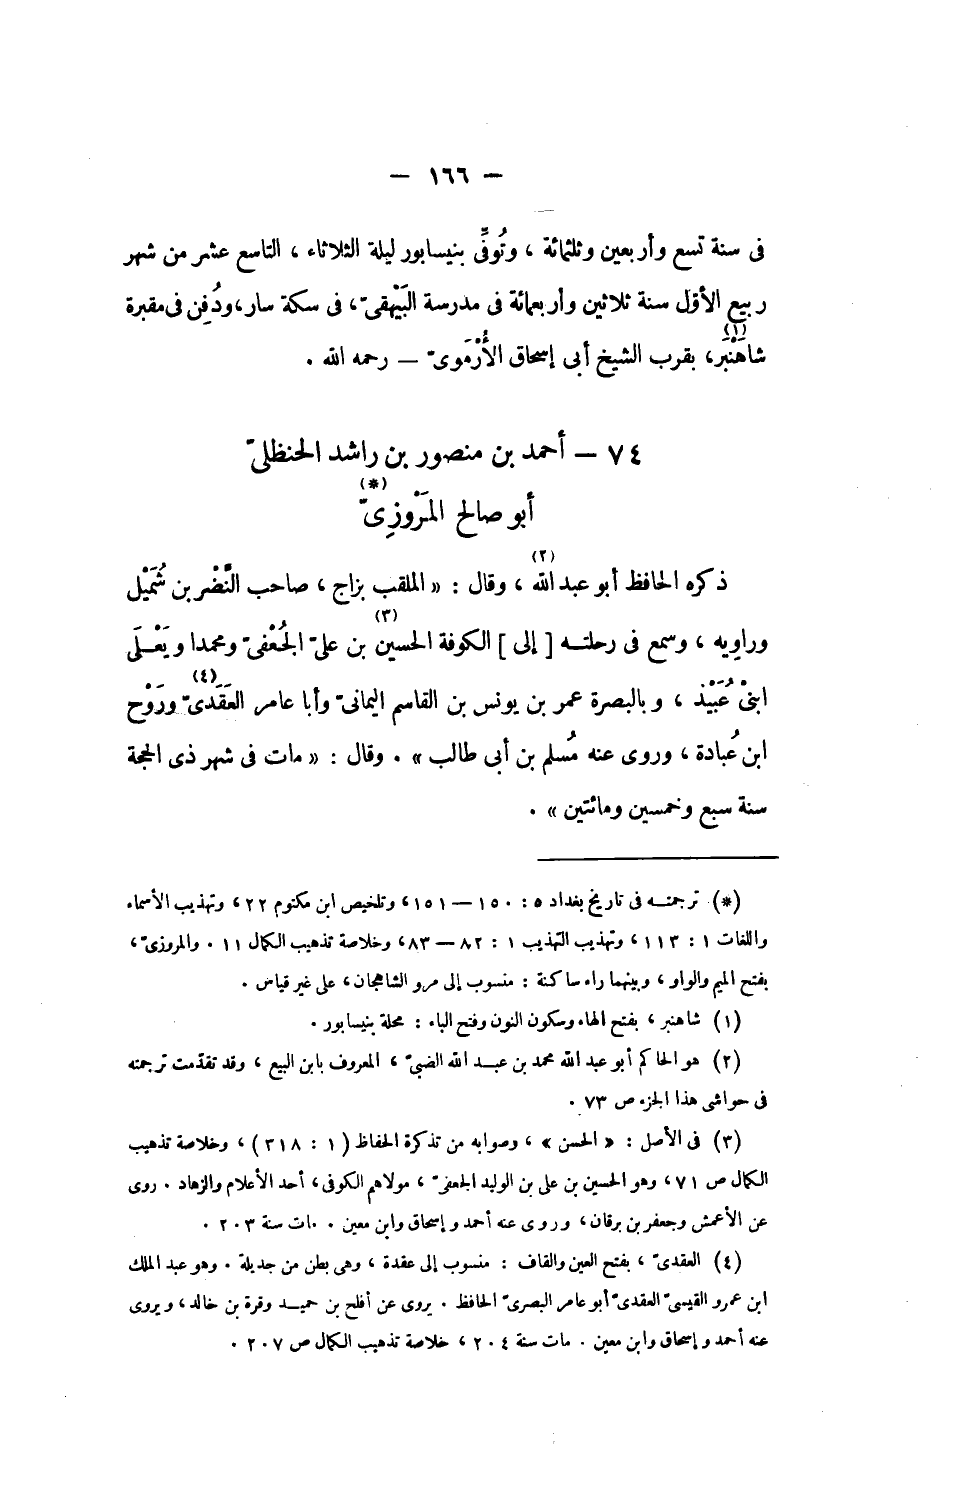 — ١٦٦ —
فى سنة تسع وأربعين وثلثمائة ، وتُوفِّى بنيسابور ليلة الثلاثاء ، التاسع عشر من شهر
ربيع الأوّل سنة ثلاثين وأربعمائة فى مدرسة البَيْهقىّ ، فى سكة سار ، ودُفِن فى مقبرة
شاهَنْبَر(١) ، بقرب الشيخ أبى إسحاق الأُرْمَوىّ — رحمه الله .
٧٤ — أحمد بن منصور بن راشد الحنظلىّ
أبو صالح المَرْوزِىّ(*)
ذكره الحافظ أبو عبد الله(٢) ، وقال : « الملقب بزاج ، صاحب النَّضْر بن شُمَيْل
وراوِيه ، وسمع فى رحلتــه [ إلى ] الكوفة الحسين(٣) بن علىّ الجُعْفىّ ومحمدا ويَعْــلَى
ابنىْ عُبَيْد ، وبالبصرة عمر بن يونس بن القاسم اليمانىّ وأبا عامر العَقَدىّ(٤) ورَوْح
ابن عُبادة ، وروى عنه مُسلم بن أبى طالب » . وقال : « مات فى شهر ذى الحجة
سنة سبع وخمسين ومائتين » .
(*) ترجمتــه فى تاريخ بغداد ٥ : ١٥٠ — ١٥١ ، وتلخيص ابن مكتوم ٢٢ ، وتهذيب الأسماء
واللغات ١ : ١١٣ ، وتهذيب التهذيب ١ : ٨٢ — ٨٣ ، وخلاصة تذهيب الكمال ١١ . والمروزىّ ،
بفتح الميم والواو ، وبينهما راء ساكنة : منسوب إلى مرو الشاهجان ، على غير قياس .
(١) شاهنبر ، بفتح الهاء وسكون النون وفتح الباء : محلة بنيسابور .
(٢) هو الحاكم أبو عبد الله محمد بن عبــد الله الضبىّ ، المعروف بابن البيع ، وقد تقدّمت ترجمته
فى حواشى هذا الجزء ص ٧٣ .
(٣) فى الأصل : « الحسن » ، وصوابه من تذكرة الحفاظ ( ١ : ٣١٨ ) ، وخلاصة تذهيب
الكمال ص ٧١ ، وهو الحسين بن على بن الوليد الجعفىّ ، مولاهم الكوفى ، أحد الأعلام والزهاد . روى
عن الأعمش وجعفر بن برقان ، وروى عنه أحمد وإسحاق وابن معين . مات سنة ٢٠٣ .
(٤) العقدىّ ، بفتح العين والقاف : منسوب إلى عقدة ، وهى بطن من جديلة . وهو عبد الملك
ابن عمرو القيسىّ العقدىّ أبو عامر البصرىّ الحافظ . يروى عن أفلح بن حميــد وقرة بن خالد ، ويروى
عنه أحمد وإسحاق وابن معين . مات سنة ٢٠٤ ، خلاصة تذهيب الكمال ص ٢٠٧ .